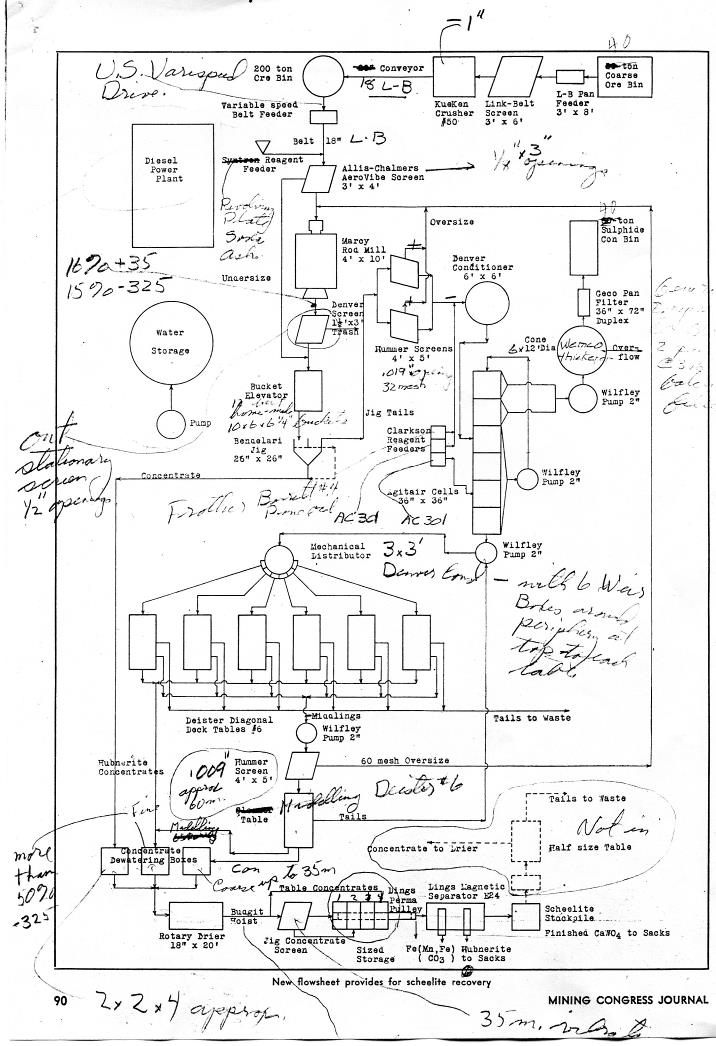 = 1"
40
U.S. Varispeed
Drive.
200 ton
Ore Bin
Conveyor
18 L-B
KueKen
Crusher
#50
Link-Belt
Screen
3' x 6'
L-B Pan
Feeder
3' x 8'
ton
Coarse
Ore Bin
Variable speed
Belt Feeder
Belt 18" L-B
Diesel
Power
Plant
Syntron Reagent
Feeder
Allis-Chalmers
AeroVibe Screen
3' x 4'
openings
Revolving
Plate
Soda
Ash.
Oversize
40
ton
Sulphide
Con Bin
Marcy
Rod Mill
4' x 10'
Denver
Conditioner
6' x 6'
16% +35
15% -325
Undersize
Geco Pan
Filter
36" x 72"
Duplex
Denver
Screen
1½'x3'
Trash
Hummer Screens
4' x 5'
.019" opening
32 mesh
Cone
6x12'Dia
Wemco
thickener
Over-
flow
Water
Storage
Pump
Bucket
Elevator
home-made
buckets
Jig Tails
Wilfley
Pump 2"
Out
stationary
screen
1/2" openings
Bendelari
Jig
26" x 26"
Clarkson
Reagent
Feeders
Concentrate
Wilfley
Pump 2"
Agitair Cells
36" x 36"
Frother Barrett #4
AC 301
AC 301
Mechanical
Distributor
3x3'
Denver Cond — with 6 Weir
Boxes around
periphery at
top to each
table.
Wilfley
Pump 2"
Deister Diagonal
Deck Tables #6
Middlings
Tails to Waste
Wilfley
Pump 2"
Hubnerite
Concentrates
.009"
approx
60m.
Hummer
Screen
4' x 5'
60 mesh Oversize
Middling Deister #6
Table
Tails
Fine
Middling
Tails to Waste
Not in
Half size Table
Concentrate to Drier
more
than
50%
-325
Concentrate
Dewatering Boxes
Con
Coarse up to 35m
Table Concentrates
1 2 3 4
Dings
Perma
Pulley
Lings Magnetic
Separator E24
Scheelite
Stockpile
Rotary Drier
18" x 20'
Budgit
Hoist
Jig Concentrate
Screen
Sized
Storage
Fe(Mn,Fe)
(CO3)
Hubnerite
to Sacks
Finished CaWO4 to Sacks
New flowsheet provides for scheelite recovery
90
2 x 2 x 4 approx.
MINING CONGRESS JOURNAL
35m.